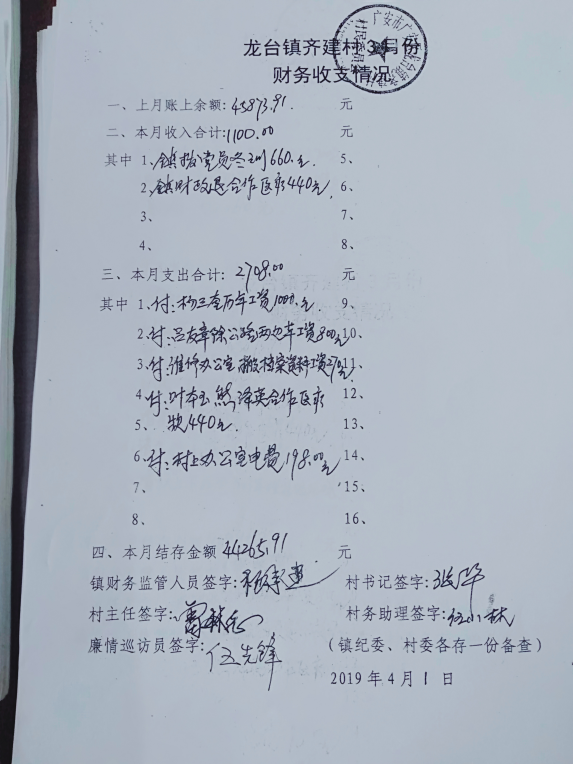 龙台镇齐建村3月份
财务收支情况
一、上月账上余额:45873.91. 元
二、本月收入合计:1100.00 元
其中 1、镇拨党员冬训660元. 5、
2、镇财政退合作医疗440元 6、
3、 7、
4、 8、
三、本月支出合计: 2708.00 元
其中 1、付:杨三奎历年工资1000.元 9、
2、付:吕友章除公路两边草工资800元 10、
3、付:维修办公室搬档案资料工资270元 11、
4、付:叶本玉熊泽英合作医疗 12、
5、款440元. 13、
6、付:村上办公室电费198.00元 14、
7、 15、
8、 16、
四、本月结存金额 44265.91 元
镇财务监管人员签字: 村书记签字:
村主任签字: 村务助理签字:伍小林
廉情巡访员签字:伍先锋 (镇纪委、村委各存一份备查)
2019年4月1日